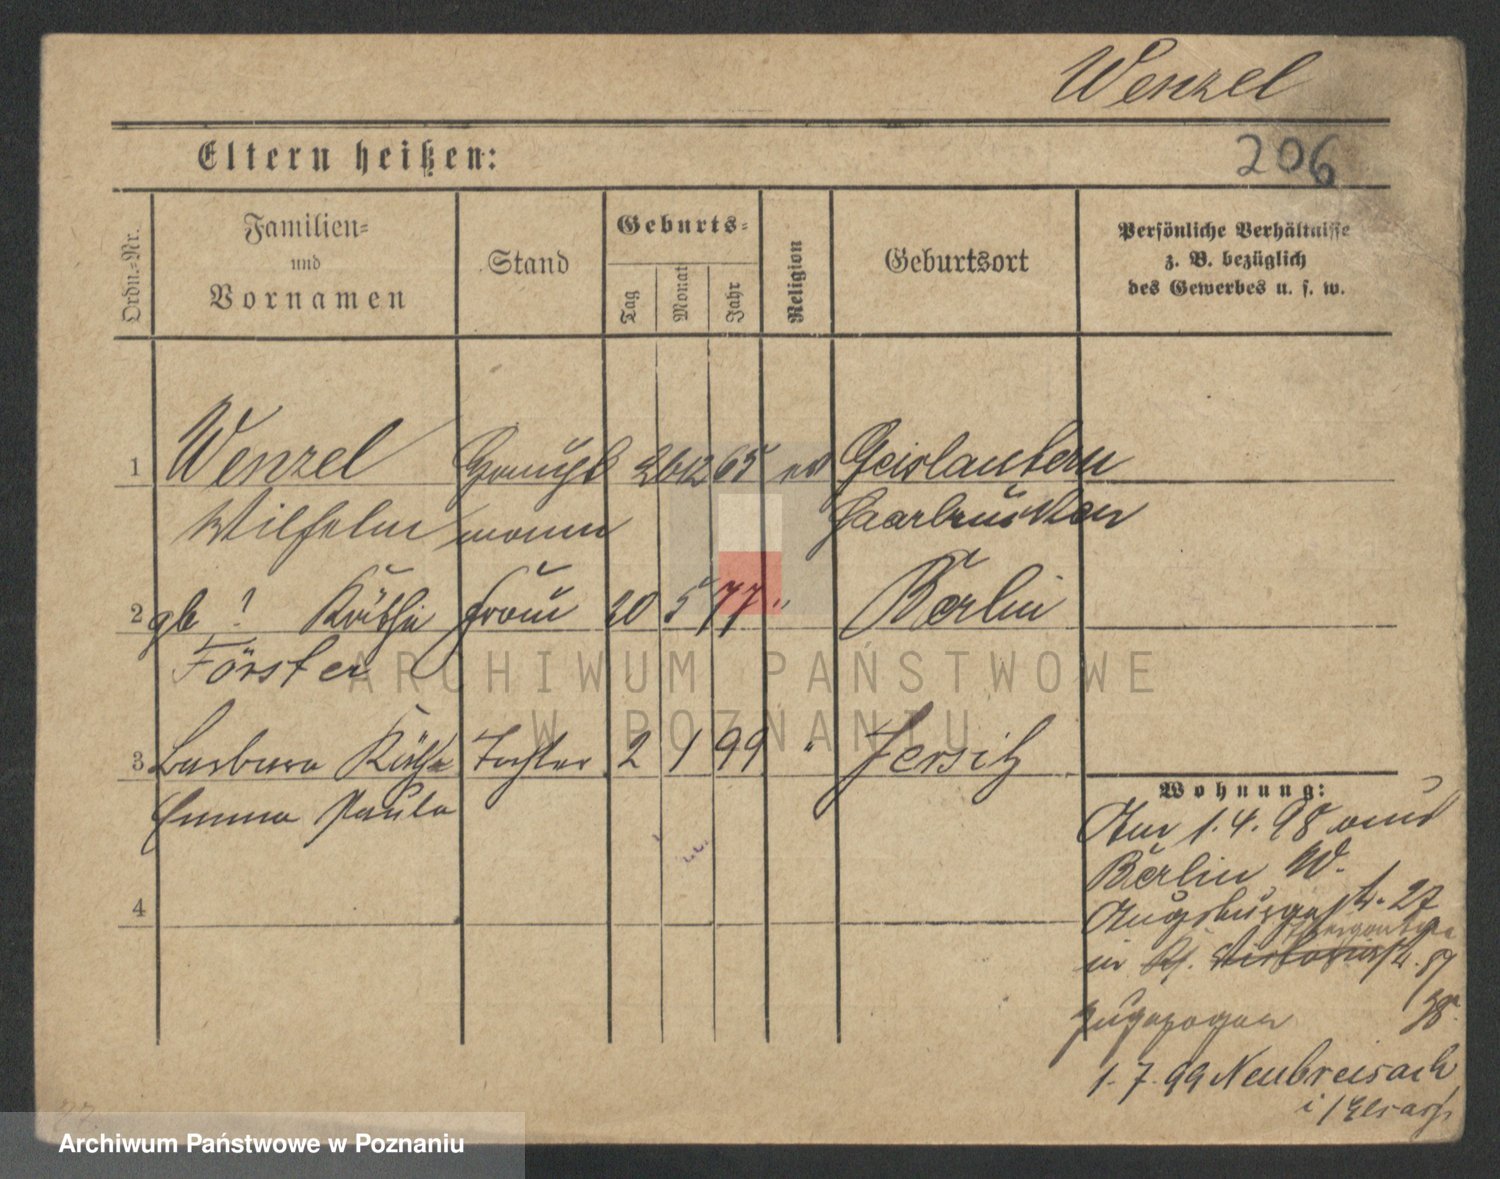 Wenzel
Eltern heißen:
206
Ordn.-Nr.
Familien-
und
Vornamen
Stand
Geburts-
Tag
Monat
Jahr
Religion
Geburtsort
Persönliche Verhältnisse
z. B. bezüglich
des Gewerbes u. s. w.
1 Wenzel Hauptm 26 12 65 ev Geislautern
Wilhelm mann Saarbrücken
2 gb ? Käthe Frau 20 5 77 " Berlin
Förster
ARCHIWUM PAŃSTWOWE
W POZNANIU
3 Barbara Käthe Tochter 2 1 99 " Jersitz
Emma Paula
Wohnung:
Am 1.4.98 aus
Berlin W.
4
Augsburgerstr. 27
in Str. 89
zugezogen 38
1.7.99 Neubreisach
i/Elsass
Archiwum Państwowe w Poznaniu